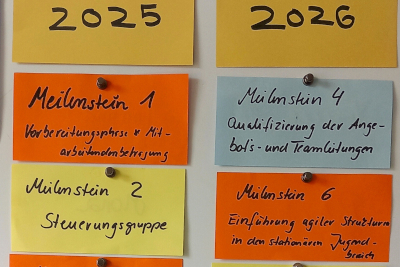 2025
Meilenstein 1
Vorbereitungsphase & Mit-
arbeitendenbefragung
Meilenstein 2
Steuerungsgruppe
2026
Meilenstein 4
Qualifizierung der Ange-
bots- und Teamleitungen
Meilenstein 6
Einführung agiler Strukturen
in den stationären Jugend-
bereich